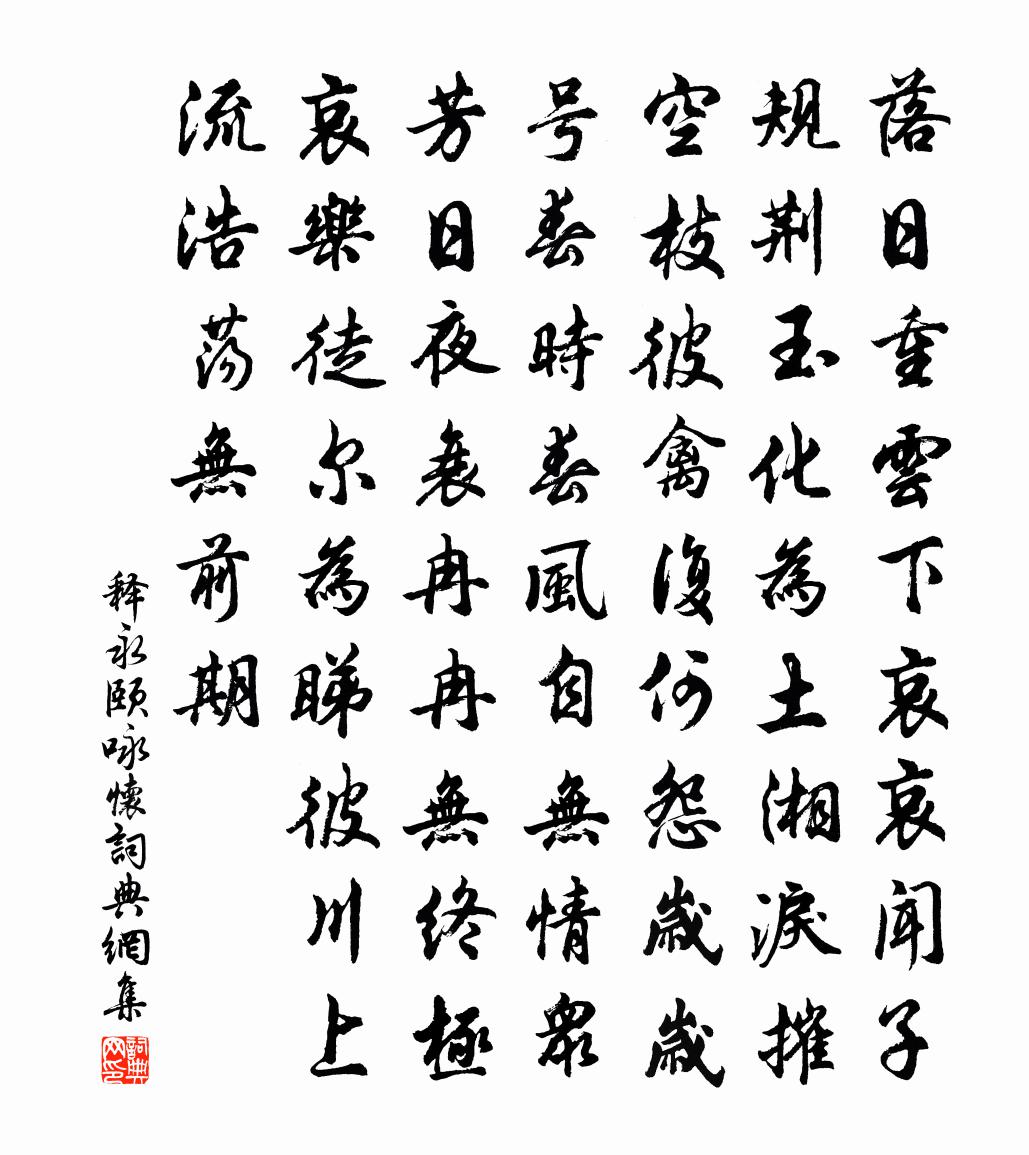 落日重雲下哀哀闻子
規荆玉化為土湘淚摧
空枝彼禽復何怨歲歲
号春時春風自無情眾
芳日夜衰冉冉無終極
哀樂徒尔為睇彼川上
流浩蕩無前期
释永颐咏懷詞典網集
詞典网印